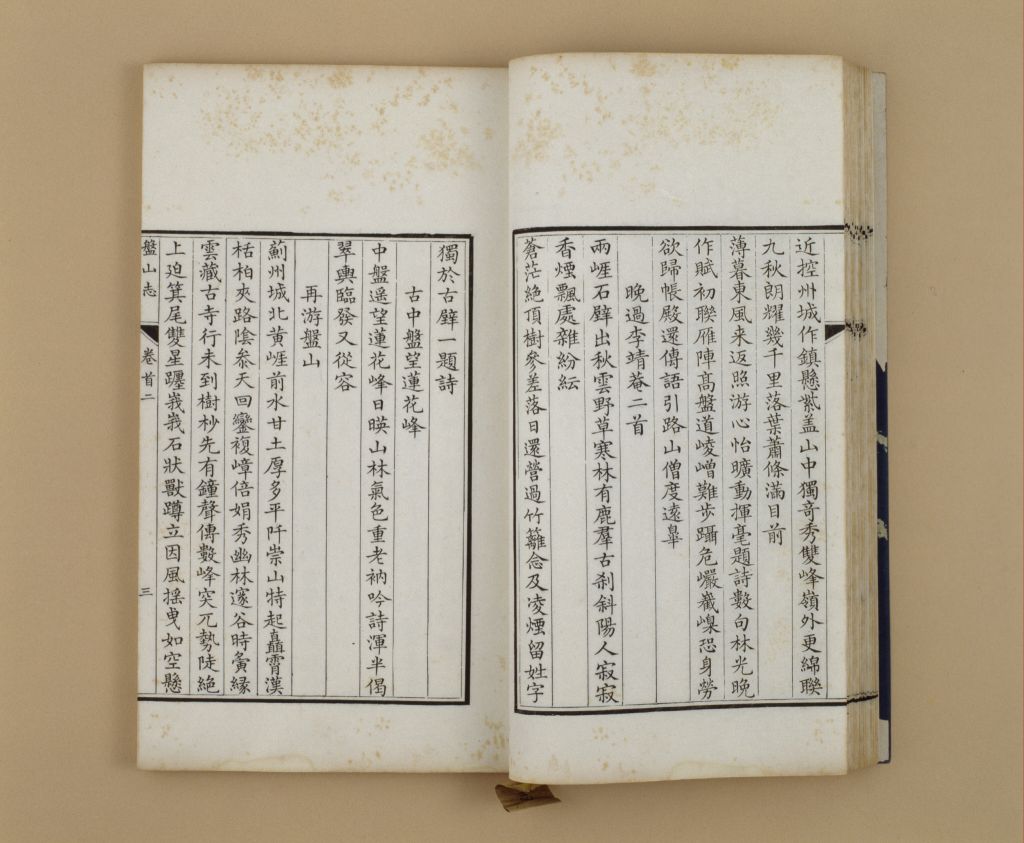 近控州城作鎮懸紫盖山中獨竒秀雙峰嶺外更綿聮
九秋朗耀幾千里落葉蕭條滿目前
薄暮東風来返照游心怡曠動揮毫題詩數句林光晩
作賦初聨雁陣髙盤道崚嶒難歩躡危巖巀嵲恐身勞
欲歸帳殿還傳語引路山僧度遠臯
晩過李靖菴二首
兩崕石壁出秋雲野草寒林有鹿羣古刹斜陽人寂寂
香煙飄處雜紛紜
蒼茫絶頂樹參差落日還營過竹籬念及凌煙留姓字
獨於古壁一題詩
古中盤望蓮花峰
中盤遥望蓮花峰日暎山林氣色重老衲吟詩渾半偈
翠輿臨發又從容
再游盤山
薊州城北黄崕前水甘土厚多平阡崇山特起矗霄漢
栝柏夾路陰叅天回巒複嶂倍娟秀幽林邃谷時夤縁
雲藏古寺行未到樹杪先有鐘聲傳數峰突兀勢陡絶
上迫箕尾雙星躔峩峩石狀獸蹲立因風揺曳如空懸
盤山志
卷首二
三